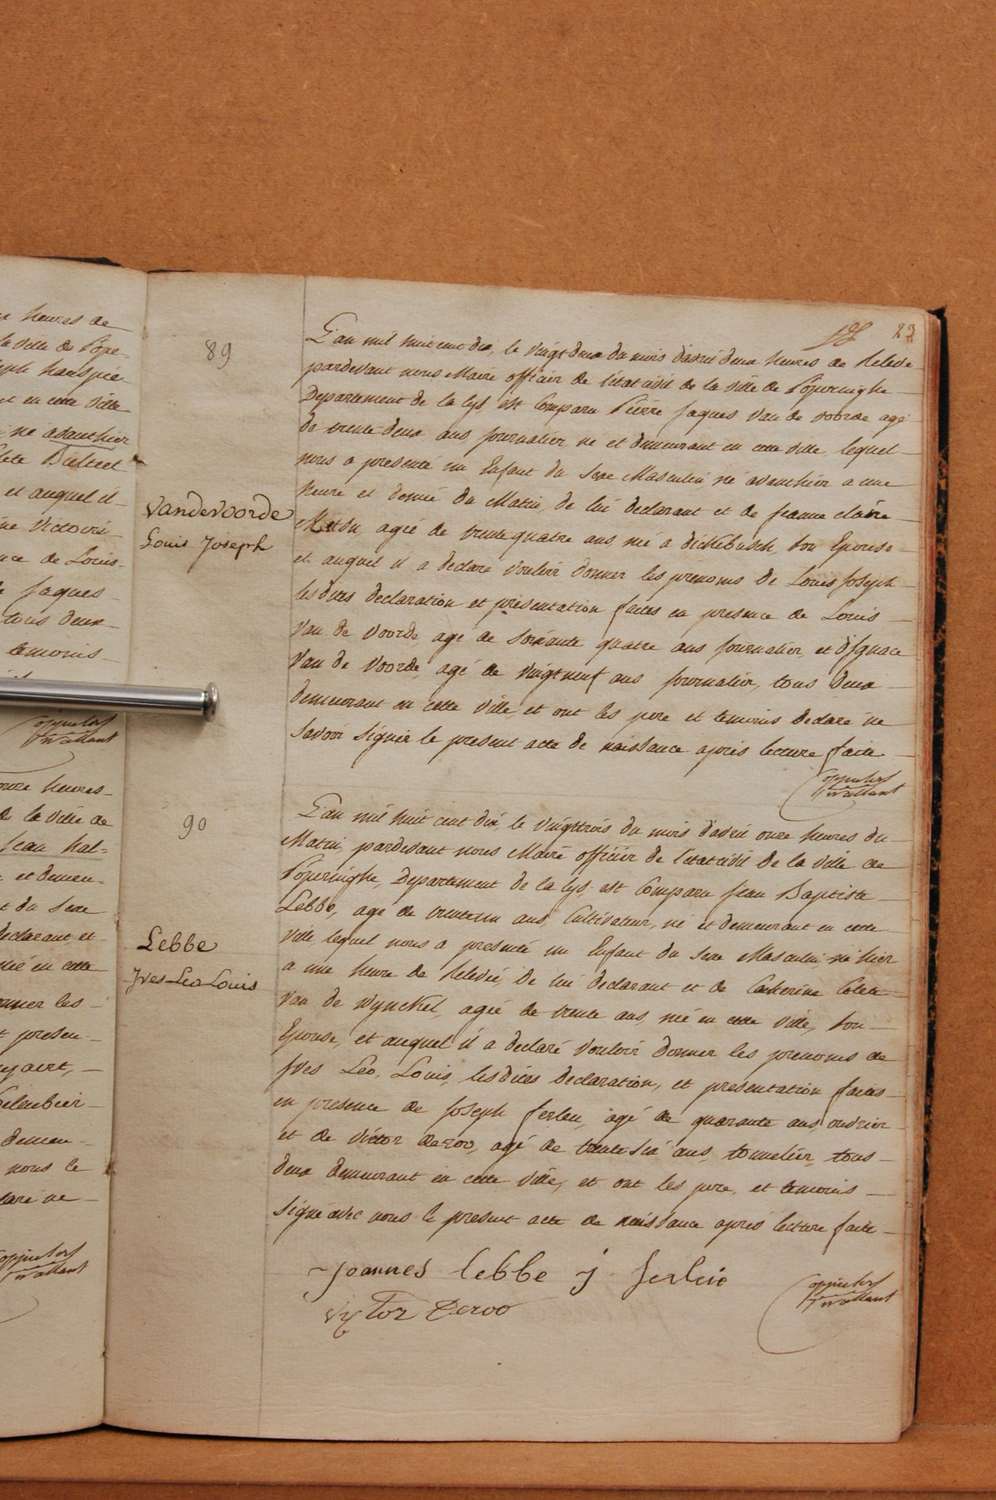 x heures de
la ville de Pope-
et en cette ville
né avanthier
et auquel il
ne victoire
nce de Louis
Jaques
tous deux
temoins
Coppieters
t'wallant
onze heures
de la ville de
Jean Bal-
et demeu-
t du sexe
declarant et
née en cette
onner les
t presen-
demeu-
nous le
claré ne
Coppieters
t'wallant
23
89
Vandevoorde
Louis Joseph
L'an mil huit cent dix, le vingt deux du mois d'avril deux heures de Relevée
pardevant nous Maire officier de l'etat civil de la ville de Poperinghe
Departement de la Lys, est Comparu Pierre Jaques Van de voorde agé
de trente deux ans journalier né et demeurant en cette ville, lequel
nous a presenté un Enfant du Sexe Masculin né avanthier a une
heure et demie du Matin, de lui declarant et de Jeanne claire
agée de trente quatre ans née a dickebusch, son Epouse
et auquel il a declaré vouloir donner les prenoms de Louis Joseph
les dites declaration et présentation faites en presence de Louis
Van de Voorde agé de soixante quatre ans journalier, et d'Ignace
Van de Voorde, agé de vingt neuf ans journalier, tous deux
demeurant en cette ville, et ont les pere et temoins declaré ne
savoir signer le present acte de naissance après lecture faite
Coppieters
t'wallant
90
Lebbe
Yves Leo Louis
L'an mil huit cent dix, le vingttrois du mois d'avril onze heures du
Matin, pardevant nous Maire officier de l'etat civil de la ville de
Poperinghe, Departement de la Lys, est Comparu Jean Baptiste
Lebbe, agé de trente un ans, Cultivateur, né et demeurant en cette
ville, lequel nous a presenté un Enfant du Sexe Masculin, né hier
a une heure de Relevée, de lui declarant et de Catherine Colette
Van de Wynckel, agée de trente ans, née en cette ville, son
Epouse, et auquel il a declaré vouloir donner les prenoms de
Yves Leo, Louis, les dites declaration, et presentation faites
en presence de Joseph ferlein, agé de quarante ans ouvrier
et de Victor deroo, agé de trente six ans, tonnelier, tous
deux demeurant en cette ville, et ont les pere, et temoins
signé avec nous le present acte de naissance après lecture faite
Joannes Lebbe j ferlein
Vyctor Deroo
Coppieters
t'wallant